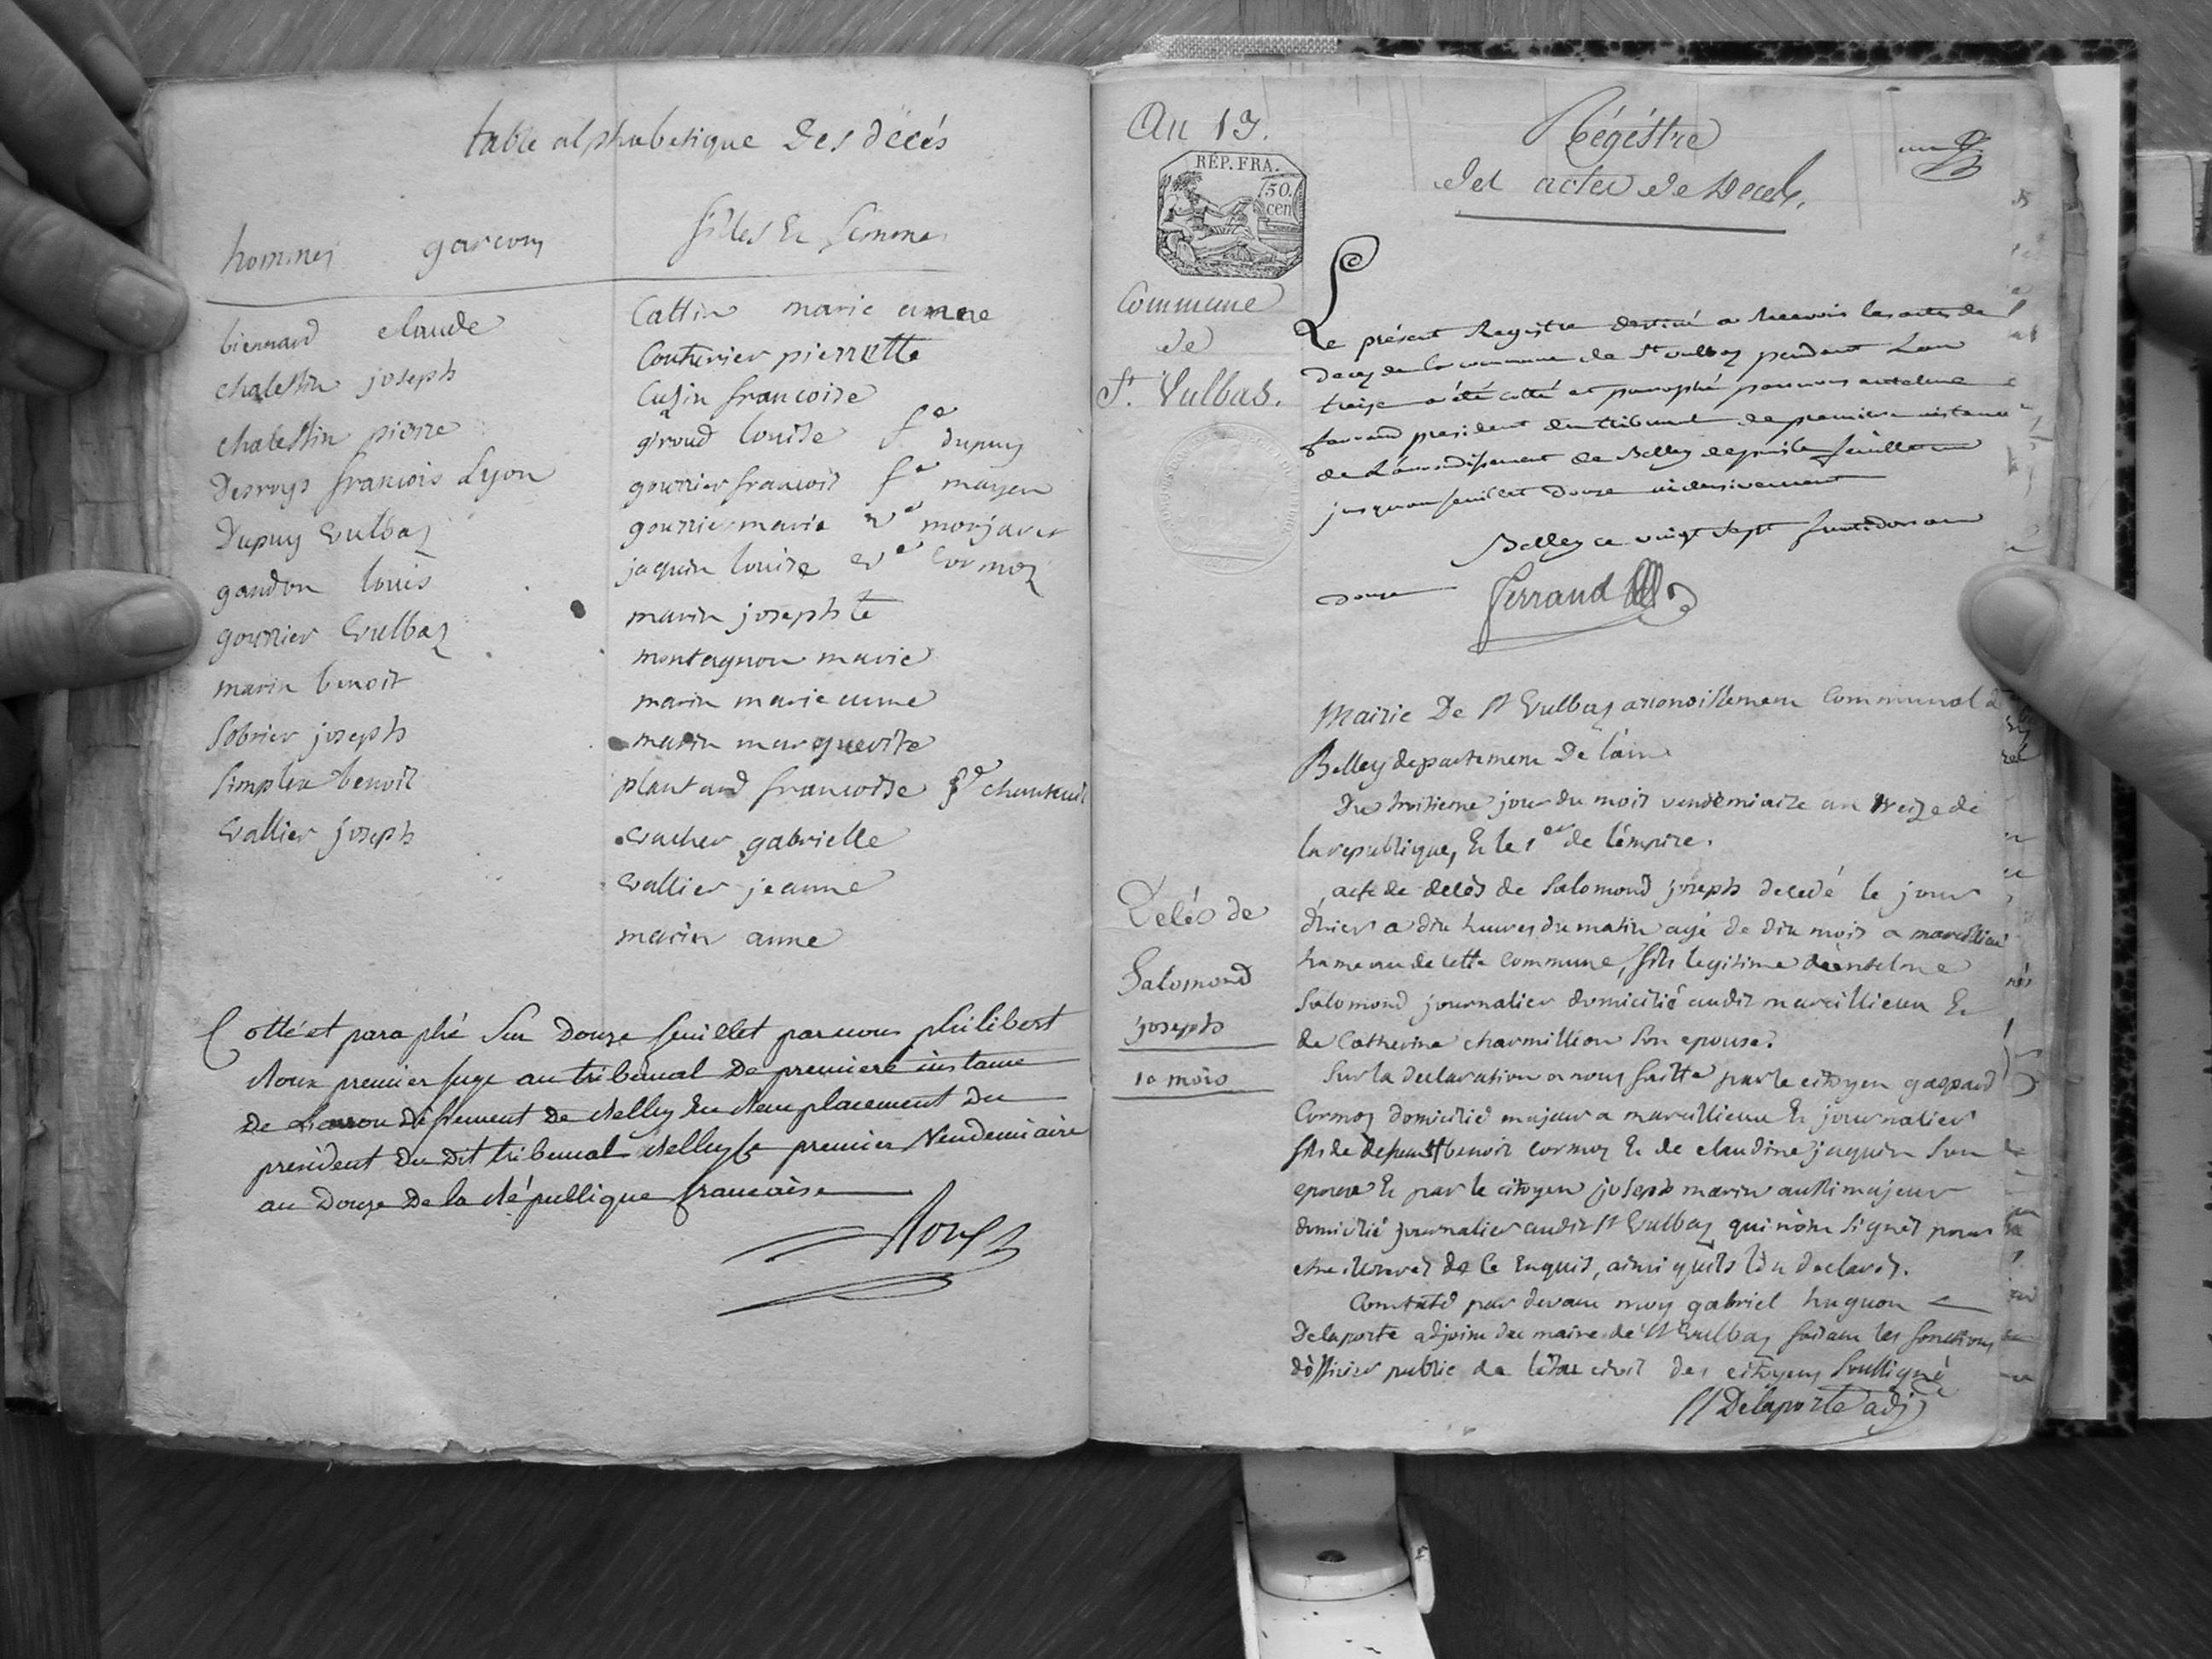 table alphabetique Des décés
hommes garcons
filles Et femmes
biennard claude
chalessin joseph
chalessin pierre
Desroys francois Lyon
Dupuy Vulbaz
gandon louis
gourrier Vulbaz
marin benoit
Sobrier joseph
Simplex benoit
Vallier joseph
Cattin marie anne
Couturier pierrette
Cuzin francoise
giroud louise fe dupuy
gourrier francois fe mayen
gourrier marie ve monjaret
jaquin louise ve Cormoz
marin josephte
montagnon marie
marin marie anne
marin marguerite
plantard francoise fe
vacher gabrielle
Vallier jeanne
marin anne
Cotté et paraphé Sur Douze feuillet par nous philibert
Roux premier juge au tribunal De premiere instance
De L'arrondissement De Belley En Remplacement Du
president Du Dit tribunal Belley le premier Vendemiaire
an Douze De la République francaise
Roux
An 13.
RÉP. FRA.
50. cen
Commune
de
St. Vulbas.
Régéstre
des actes de Décés.
un
Le présent Registre destiné a Recevoir les actes de
Deces de la commune de St vulbaz pendant Lan
treize a été cotté et paraphé par nous antelme
ferrand president du tribunal de premiere instance
de L'arrondissement de Belley depuis le feuillet un
jusqu'au feuillet Douze inclusivement
Belley ce vingt sept fructidor an
Douze
Ferrand
Mairie De St Vulbaz arrondissement Communal de
Belley departement De l'ain
Du huitieme jour du mois vendémiaire an treize de
la republique, Et le 1er de l'émpire.
acte de décès de Salomond joseph decedé le jour
d'hier a dix heures du matin agé de dix mois a marcillieu
hameau de cette Commune, fils legitime de entelme
Salomond journalier domicilié audit marcillieux Et
de Catherine charmillion Son epouse.
Décés de
Salomond
joseph
10 mois
Sur la declaration a nous faitte par le citoyen gaspard
Cormoz domicilié majeur a marcillieux Et journalier
fils de defeunt benoit cormoz Et de claudine jaquin Son
epouse Et par le citoyen joseph marin aussi majeur
domicilié journalier audit St Vulbaz qui n'ont Signés pour
de ce Enquis, ainsi quils l'on declarés.
Constaté par devant moy gabriel huguon
Delaporte adjoint du maire de St Vulbaz faisant les fonctions
d'officier public de l'état civil des citoyens Soussigné
Delaporte adj